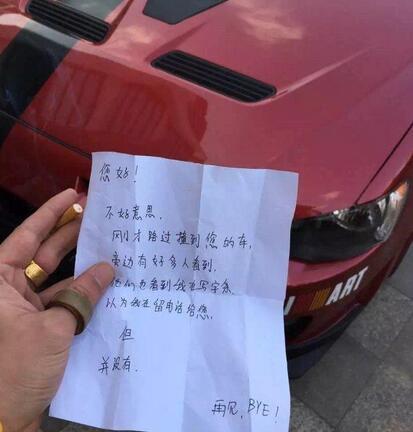 您好!
不好意思.
刚才路过撞到您的车,
旁边有好多人看到.
他们也看到我在写字条
以为我在留电话给您.
但
并没有.
再见, BYE!
ART